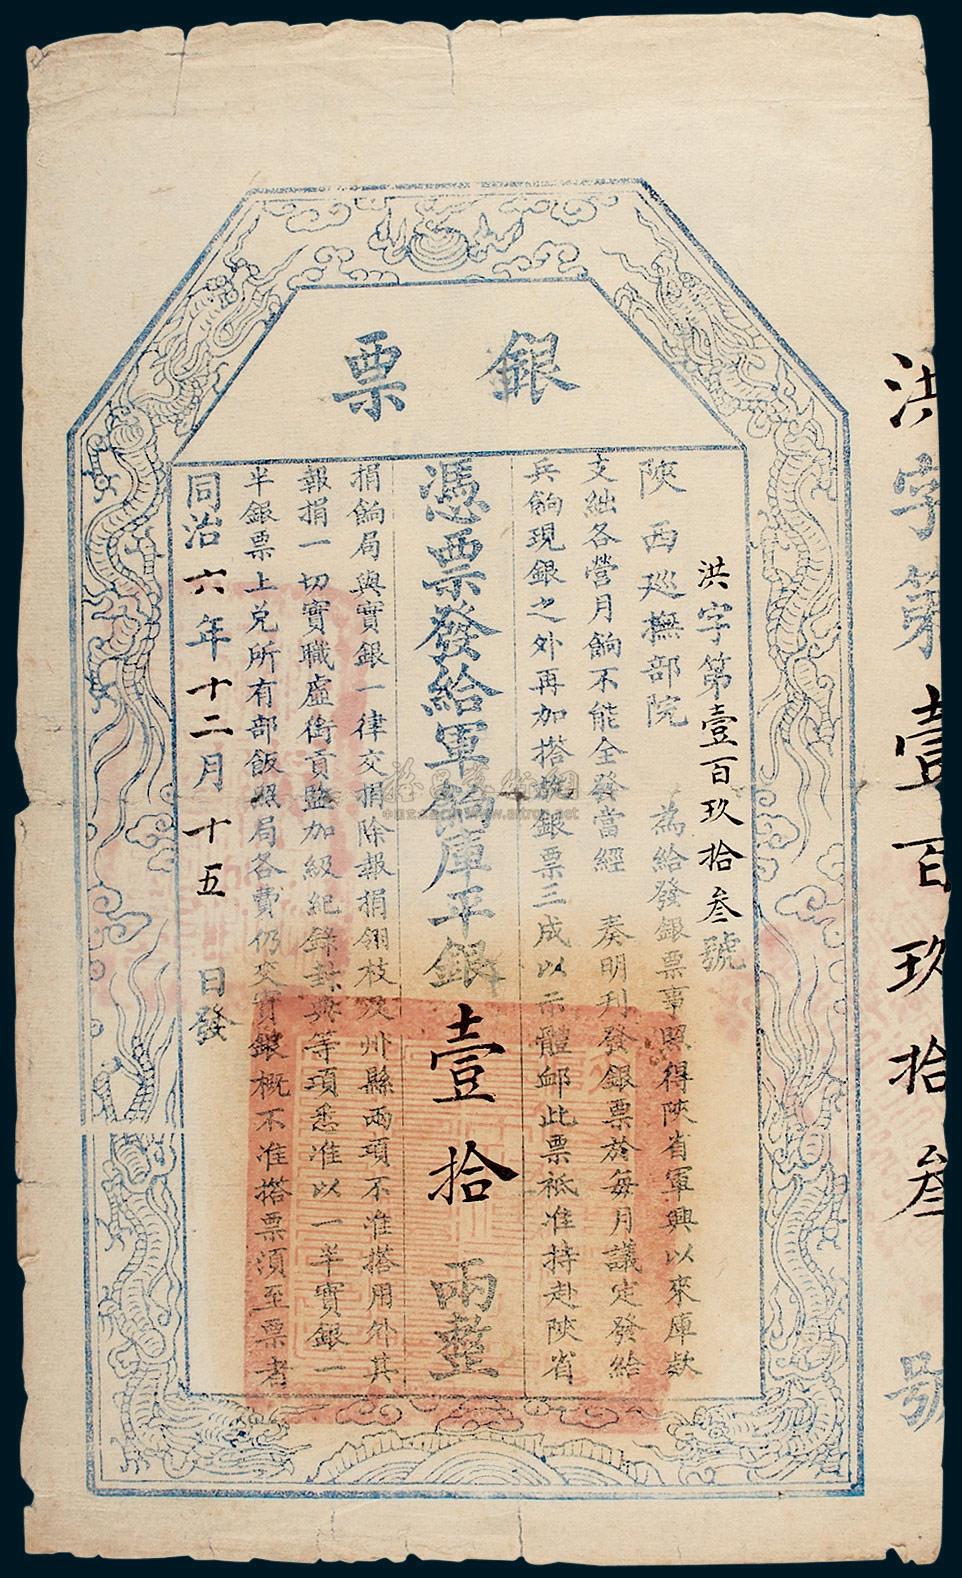 洪字第壹百玖拾叁號
銀票
洪字第壹百玖拾叁號
陝西巡撫部院 為給發銀票事照得陝省軍興以來庫款
支絀各營月餉不能全發當經 奏明刋發銀票於每月議定發給
兵餉現銀之外再加搭放銀票三成以示體邮此票祗准持赴陝省
憑票發給軍餉庫平銀壹拾兩整
捐餉局與實銀一律交捐除報捐翎枝及州縣兩項不准搭用外其
報捐一切實職虛銜貢監加級紀錄封典等項悉准以一半實銀一
半銀票上兌所有部飯照局各費仍交實銀概不准搭票須至票者
同治六年十二月十五日發